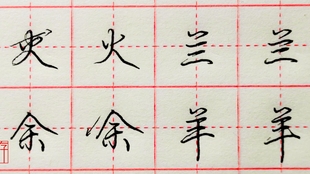 火兰兰
余余羊羊